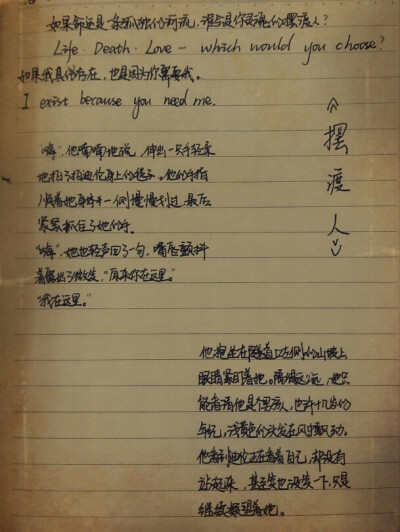 如果命运是一条孤独的河流，谁会是你灵魂的摆渡人？
Life · Death · Love — which would you choose?
如果我真的存在，也是因为你需要我。
I exist because you need me.
《摆渡人》
"嗨"，他喃喃地说，伸出一只手轻柔
地拍了拍迪伦身上的毯子。他的手指
顺着她身体一侧慢慢划过，最后
紧紧抓住了她的手。
"嗨"，她也轻声回了一句，嘴唇颤抖
着露出了微笑，"原来你在这里。"
"我在这里。"
他抱坐在隧道口左侧的山坡上
眼睛紧盯着她。离得远远，她只
能看清他是个男孩，也许十几岁的
年纪，浅黄色的头发在风中飘动。
他看到她正在看着自己，却没有
站起来，甚至笑也没笑一下，只是
继续凝望着她。